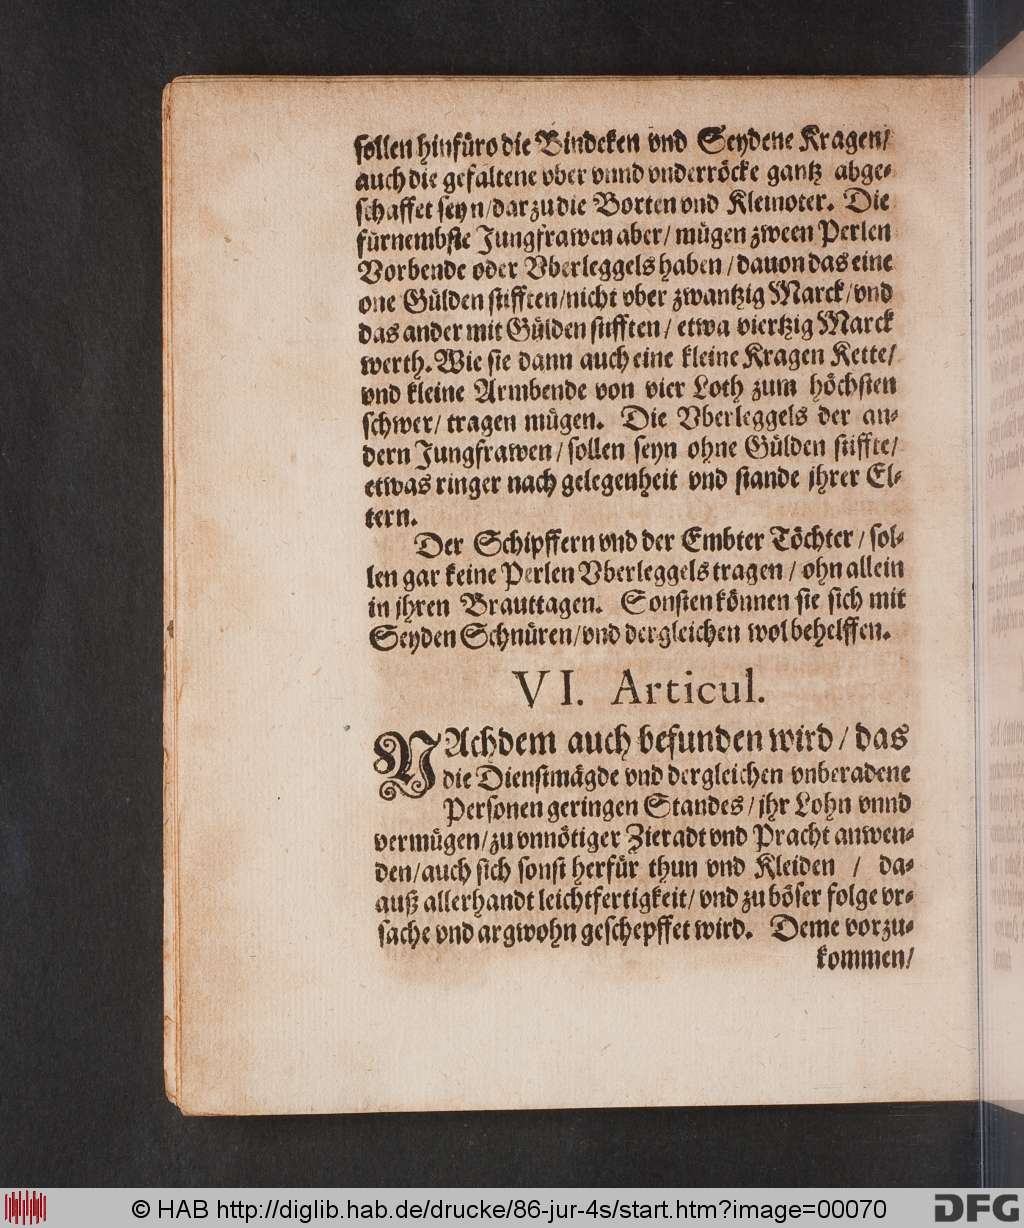 sollen hinfüro die Bindeken vnd Seydene Kragen/
auch die gefaltene vber vnnd vnderröcke gantz abge-
schaffet seyn/darzu die Borten vnd Kleinoter. Die
fürnembste Jungfrawen aber/ mügen zween Perlen
Vorbende oder Vberleggels haben/dauon das eine
one Gülden stifften/nicht vber zwantzig Marck/vnd
das ander mit Gülden stifften/ etwa viertzig Marck
werth. Wie sie dann auch eine kleine Kragen Kette/
vnd kleine Armbende von vier Loth zum höchsten
schwer/ tragen mügen. Die Vberleggels der an-
dern Jungfrawen/ sollen seyn ohne Gülden stiffte/
etwas ringer nach gelegenheit vnd stande jhrer El-
tern.
Der Schipffern vnd der Embter Töchter/ sol-
len gar keine Perlen Vberleggels tragen/ ohn allein
in jhren Brauttagen. Sonsten können sie sich mit
Seyden Schnüren/vnd dergleichen wol behelffen.
VI. Articul.
NAchdem auch befunden wird/ das
die Dienstmägde vnd dergleichen vnberadene
Personen geringen Standes/ jhr Lohn vnnd
vermügen/zu vnnötiger Zieradt vnd Pracht anwen-
den/auch sich sonst herfür thun vnd Kleiden / da-
auß allerhandt leichtfertigkeit/ vnd zu böser folge vr-
sache vnd argwohn geschepffet wird. Deme vorzu-
kommen/
© HAB http://diglib.hab.de/drucke/86-jur-4s/start.htm?image=00070
DFG